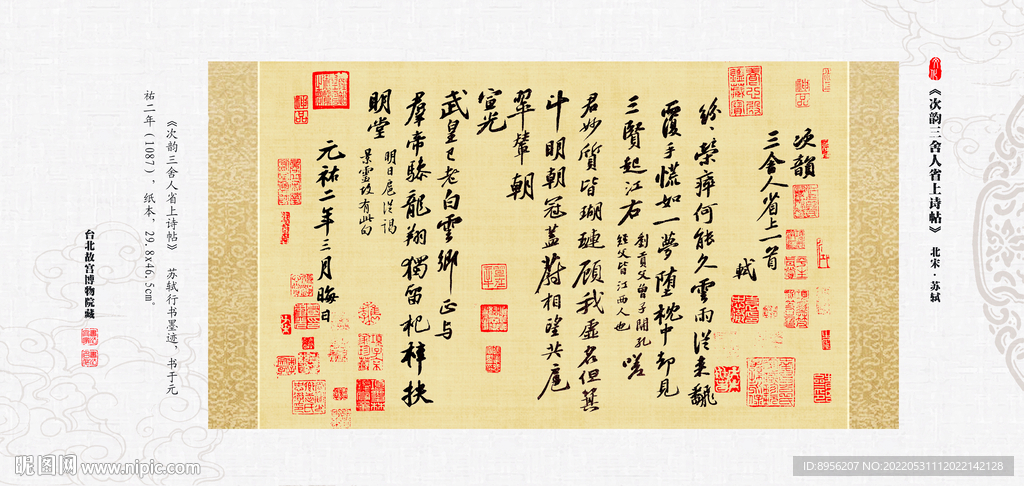 《次韵三舍人省上诗帖》 北宋·苏轼
次韻
三舍人省上一首
軾
紛紛榮瘁何能久雲雨從来翻
覆手慌如一夢墮枕中却見
三賢起江右
劉貢父曾子開孔
經父皆江西人也
嗟
君妙質皆瑚璉顧我虛名但箕
斗明朝冠蓋蔚相望共扈
翠輦朝
宣光
武皇已老白雲鄉正与
羣帝驂龍翔獨留杞梓扶
明堂
明日扈從謁
景靈故有此句
元祐二年三月晦日
《次韵三舍人省上诗帖》 苏轼行书墨迹,书于元
祐二年(1087),纸本,29.8x46.5cm。
台北故宫博物院藏
昵图网 www.nipic.com
ID:8956207 NO:20220531112022142128